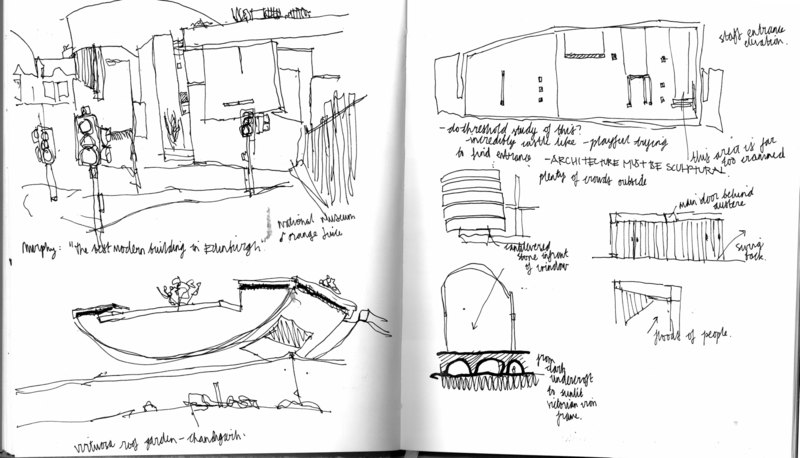 National Museum
& orange juice
Murphy: "The best modern building in Edinburgh"
virtuosa roof garden - Chandigarh.
staff entrance
elevation.
- do threshold study of this?
- incredibly castle like - playful trying
to find entrance - ARCHITECTURE MUST BE SCULPTURAL
this area is far
too crammed
plenty of crowds outside
cantilevered
stone infront
of window
main door behind
austere
swing
back.
floods of people.
from
dark
undercroft
to sunlit
victorian iron
frame.